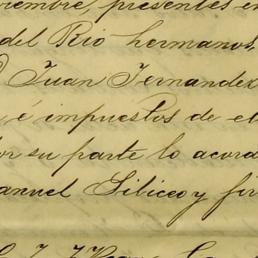 viembre, presentes en
del Rio hermanos
Juan Fernandez
é impuestos de el
or su parte lo acord
anuel Siliceo y fir